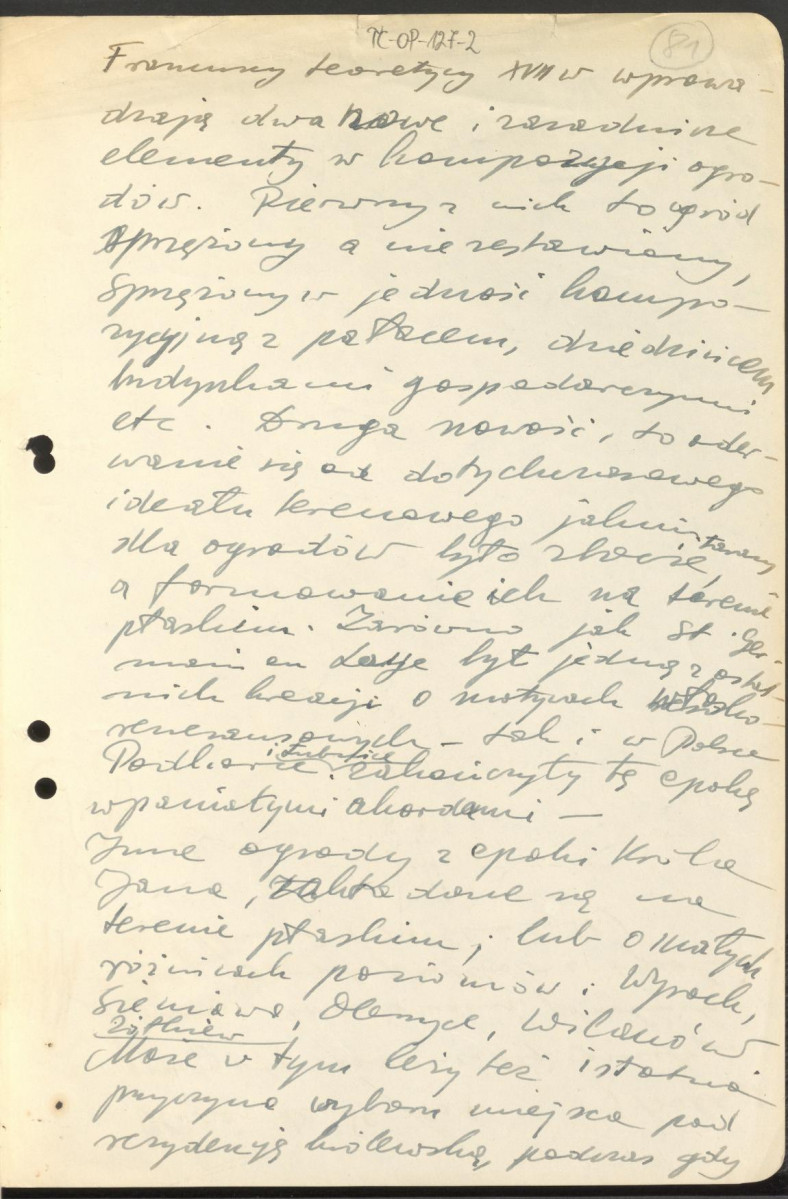 TC-OP-127-2
81
Francuscy teoretycy XVII w wprowa-
dzają dwa nowe i zasadnicze
elementy w kompozycji ogro-
dów. Pierwszy z nich to ogród
sprzężony a nie zestawiony,
sprzężony w jedność kompo-
zycyjną z pałacem, dziedzińcem
budynkami gospodarczymi
etc. Druga nowość, to oder-
wanie się od dotychczasowego
ideału terenowego jakim tarasy
dla ogrodów było zbocze,
a formowanie ich na terenie
płaskim. Zarówno jak St. Ger-
main en Laye był jedną z ostat-
nich kreacji o motywach włosko-
renesansowych - tak i w Polsce
Podhorce i Łubnice zakończyły tę epokę
wpaniałymi akordami —
Inne ogrody z epoki Króla
Jana, zakładane są na
terenie płaskim, lub o małych
różnicach poziomów: Wysock,
Sieniawa, Oleszyce, Wilanów
Żółkiew
Może w tym leży też istotna
przyczyna wyboru miejsca pod
rezydencją królewską, podczas gdy